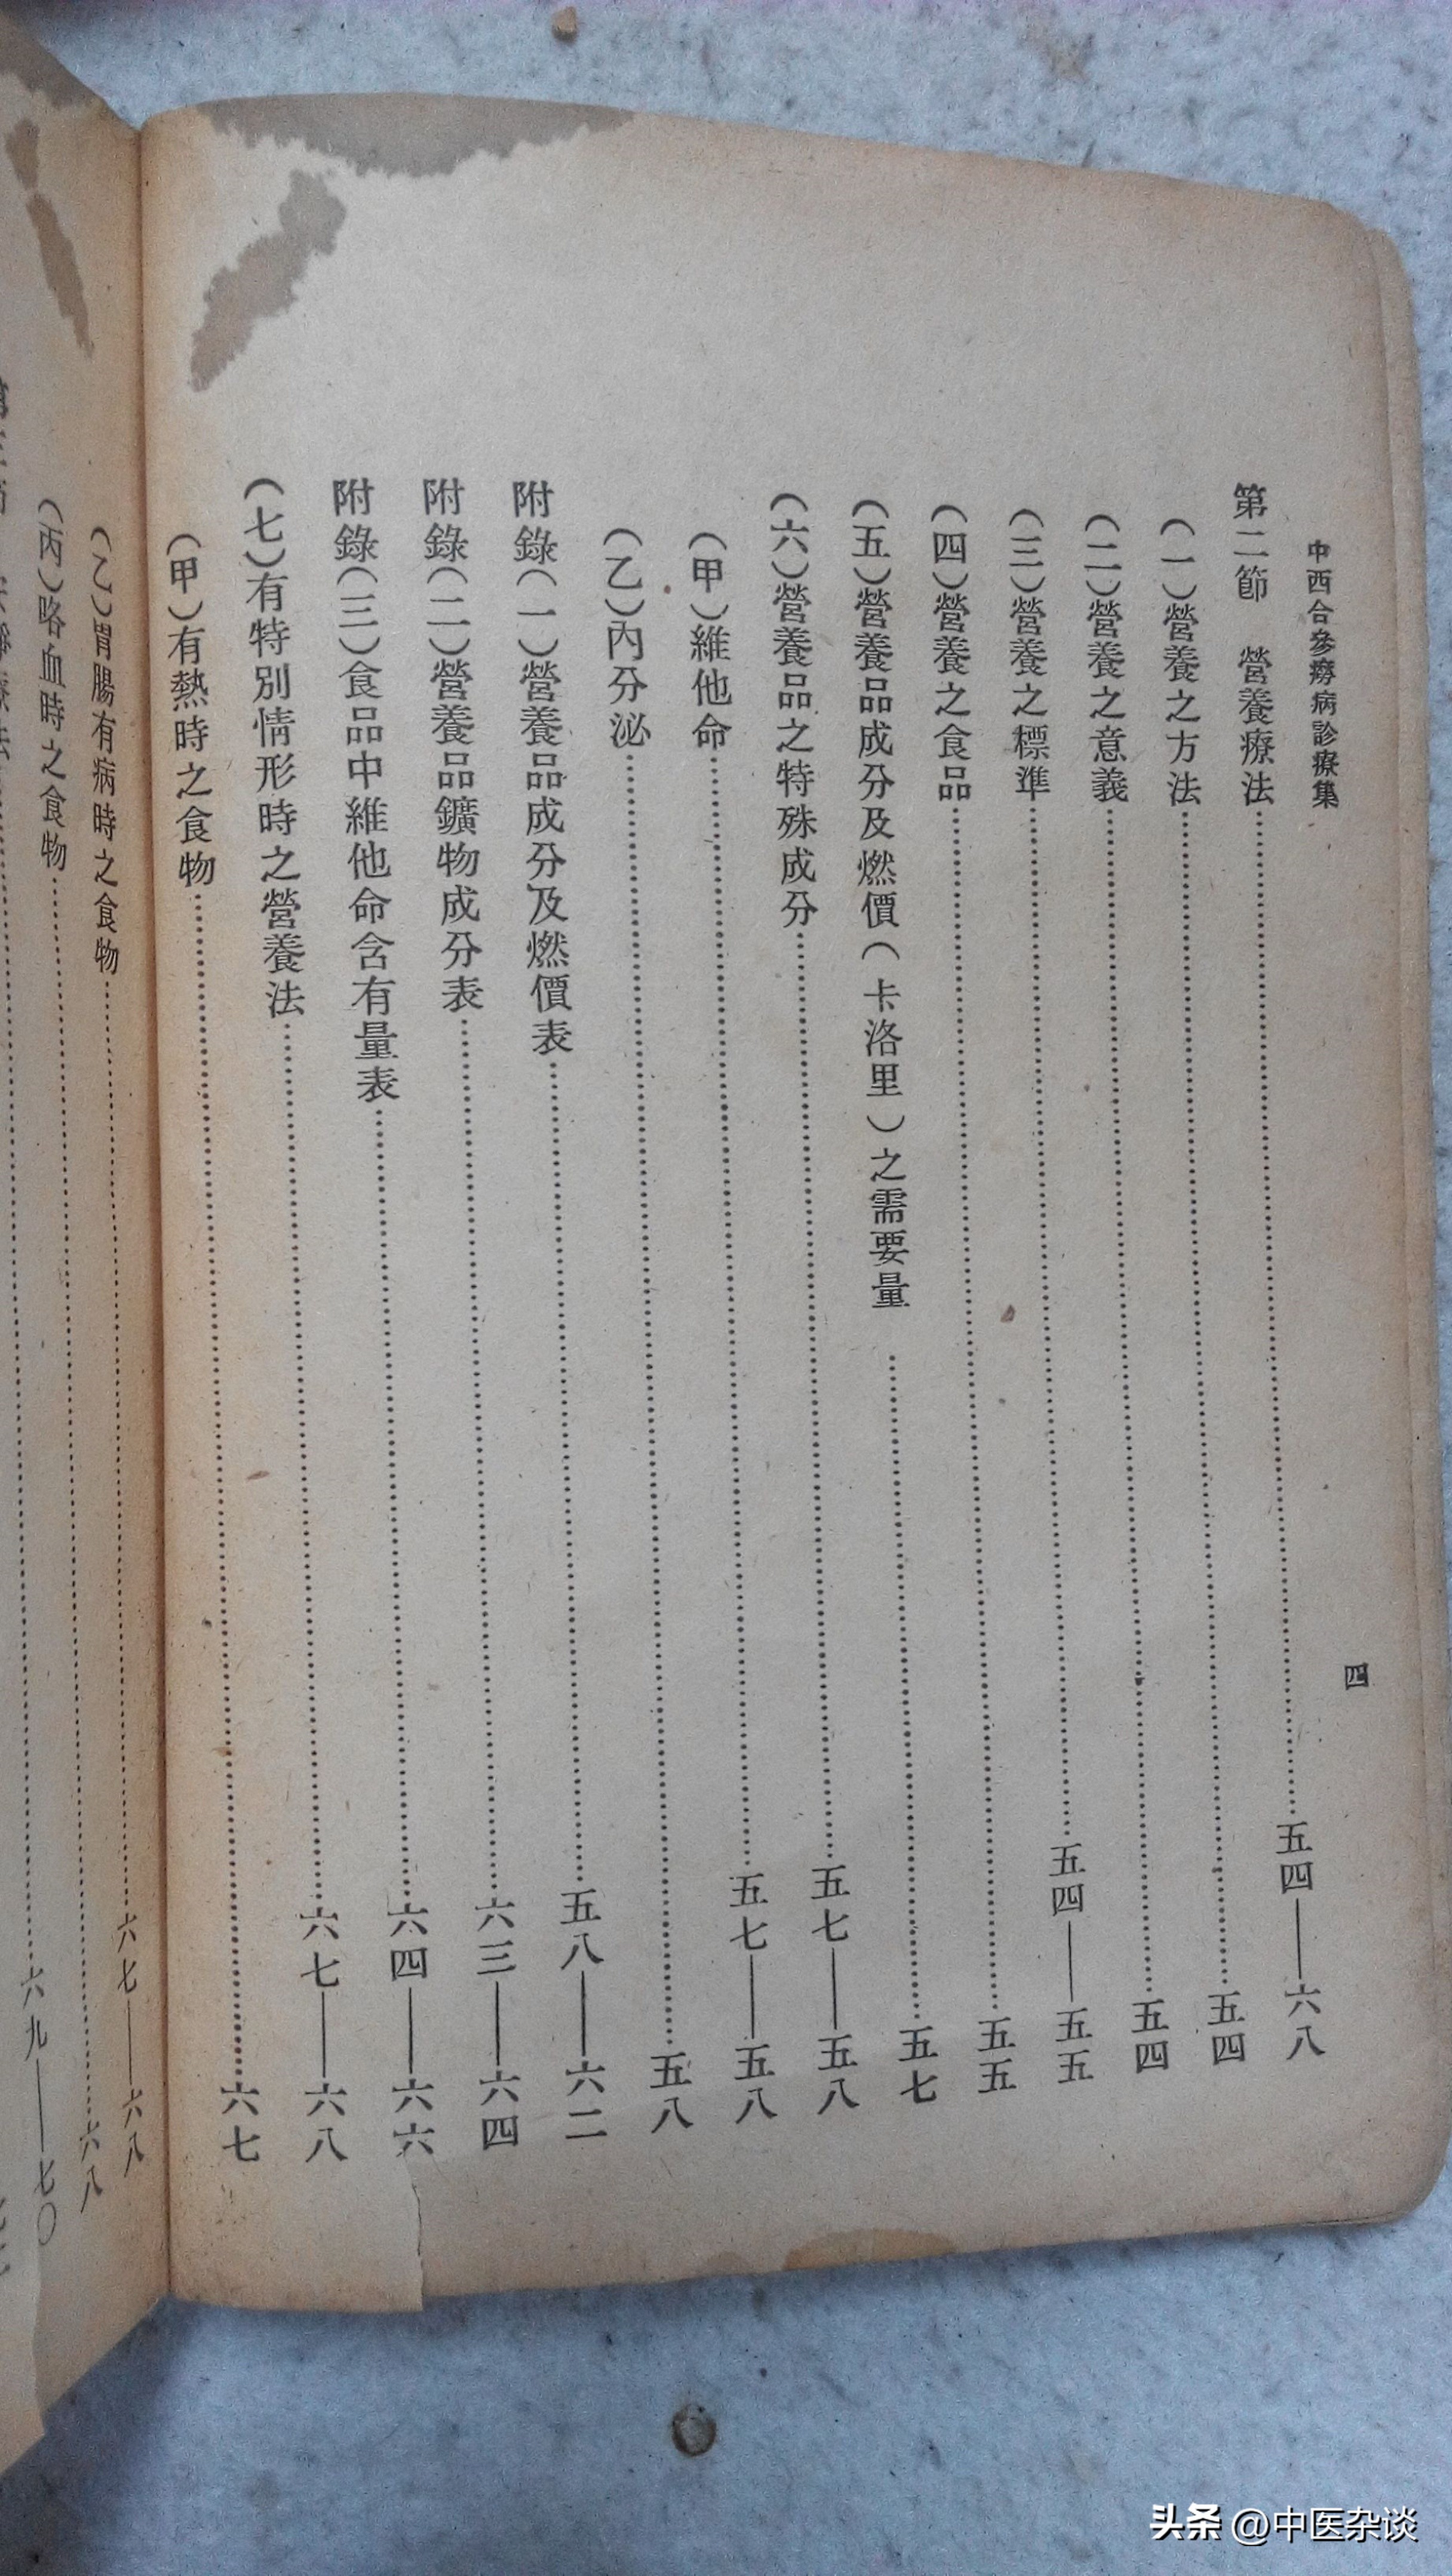 中西合參癆病診療集
四
第二節　營養療法……五四——六八
（一）營養之方法……五四
（二）營養之意義……五四
（三）營養之標準……五四——五五
（四）營養之食品……五五
（五）營養品成分及燃價（卡洛里）之需要量……五七
（六）營養品之特殊成分……五七——五八
（甲）維他命……五七——五八
（乙）內分泌……五八
附錄（一）營養品成分及燃價表……五八——六二
附錄（二）營養品鑛物成分表……六三——六四
附錄（三）食品中維他命含有量表……六四——六六
（七）有特別情形時之營養法……六七——六八
（甲）有熱時之食物……六七
（乙）胃腸有病時之食物……六七——六八
（丙）咯血時之食物……六八
六九——七〇
头条 @中医杂谈